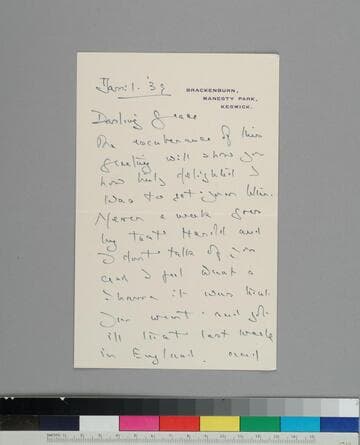 Jan. 1. '39
BRACKENBURN,
MANESTY PARK,
KESWICK.
Darling Grace
The exuberance of this
greeting will show you
how truly delighted I
was to get your letter.
Never a week goes
by that Harold and
I don't talk of you
and I feel what a
shame it was that
you went and got
ill that last week
in England. and